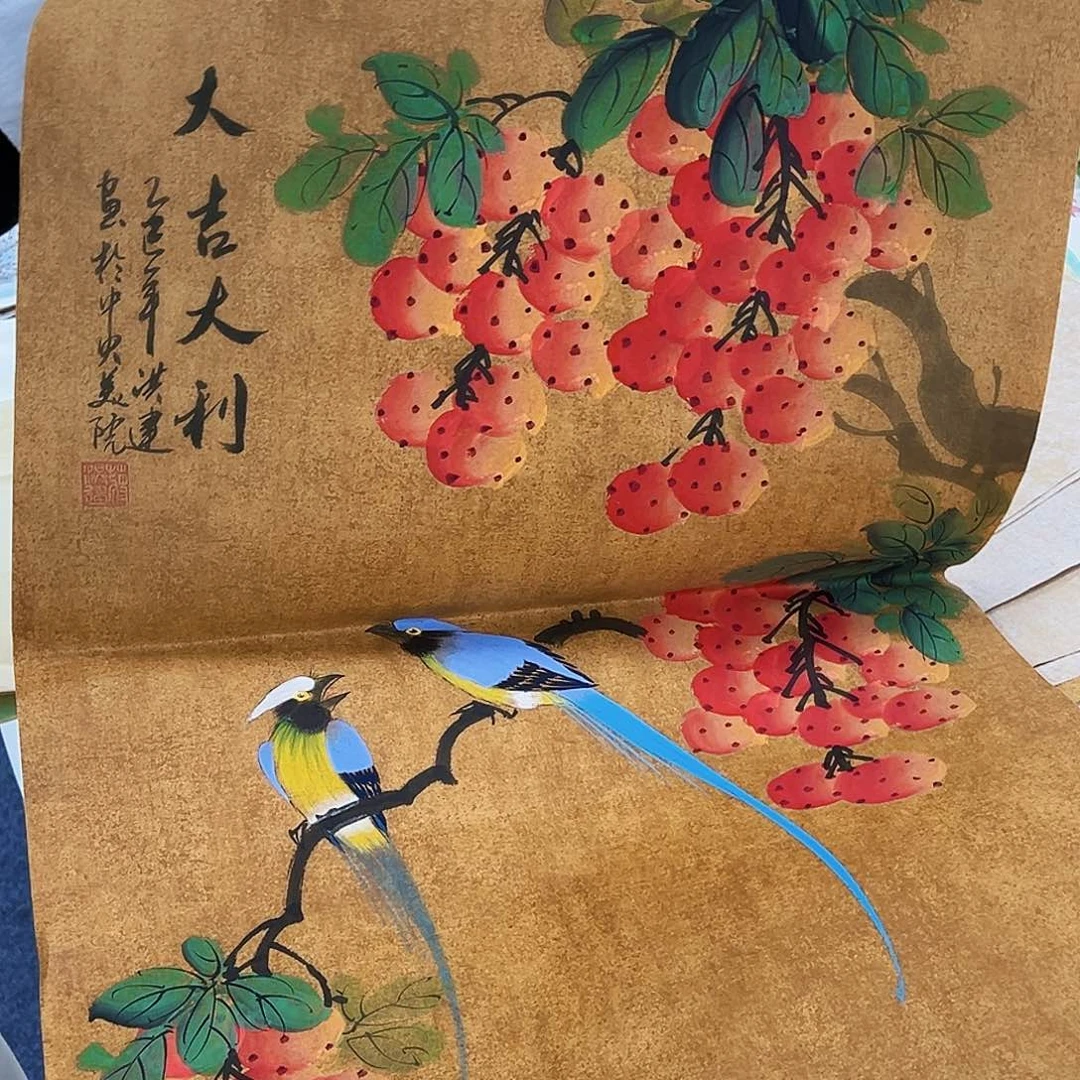 大吉大利
乙巳年洪建
画於中央美院